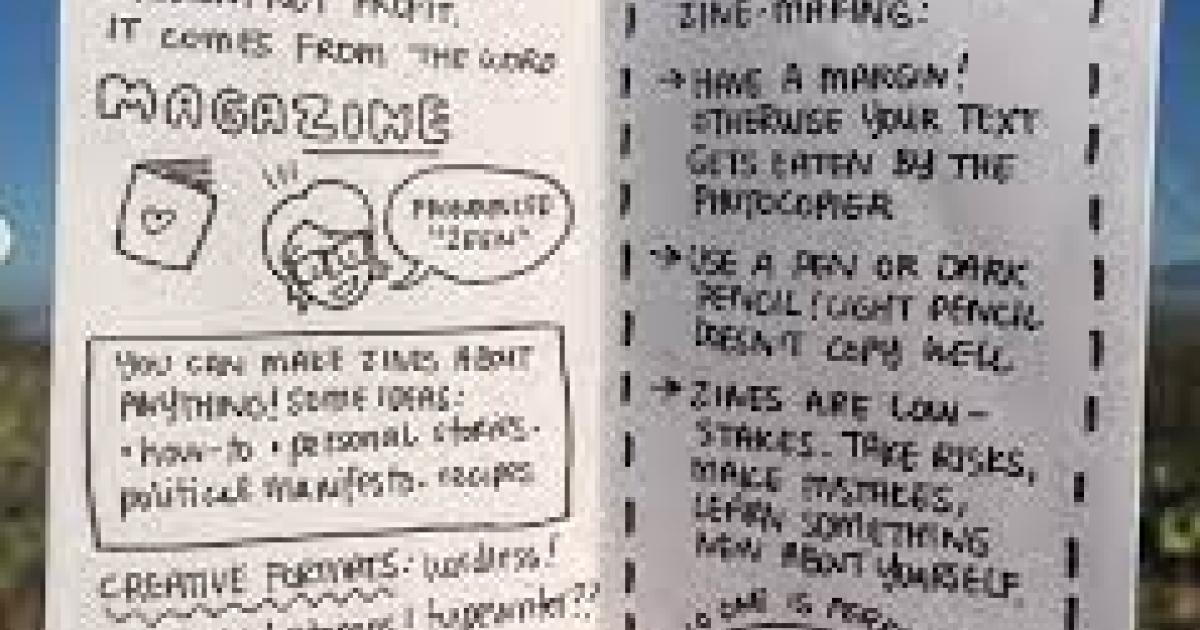 NOT PROFIT.
IT COMES FROM THE WORD
MAGAZINE
PRONOUNCED
"ZEEN"
YOU CAN MAKE ZINES ABOUT
ANYTHING! SOME IDEAS:
• how-to • personal stories •
political manifesto • recipes
CREATIVE FORMATS: wordless!
typewriter??
ZINE-MAKING:
→ HAVE A MARGIN!
OTHERWISE YOUR TEXT
GETS EATEN BY THE
PHOTOCOPIER
→ USE A PEN OR DARK
PENCIL! LIGHT PENCIL
DOESN'T COPY WELL
→ ZINES ARE LOW-
STAKES. TAKE RISKS,
MAKE MISTAKES,
LEARN SOMETHING
NEW ABOUT YOURSELF
ONE IS